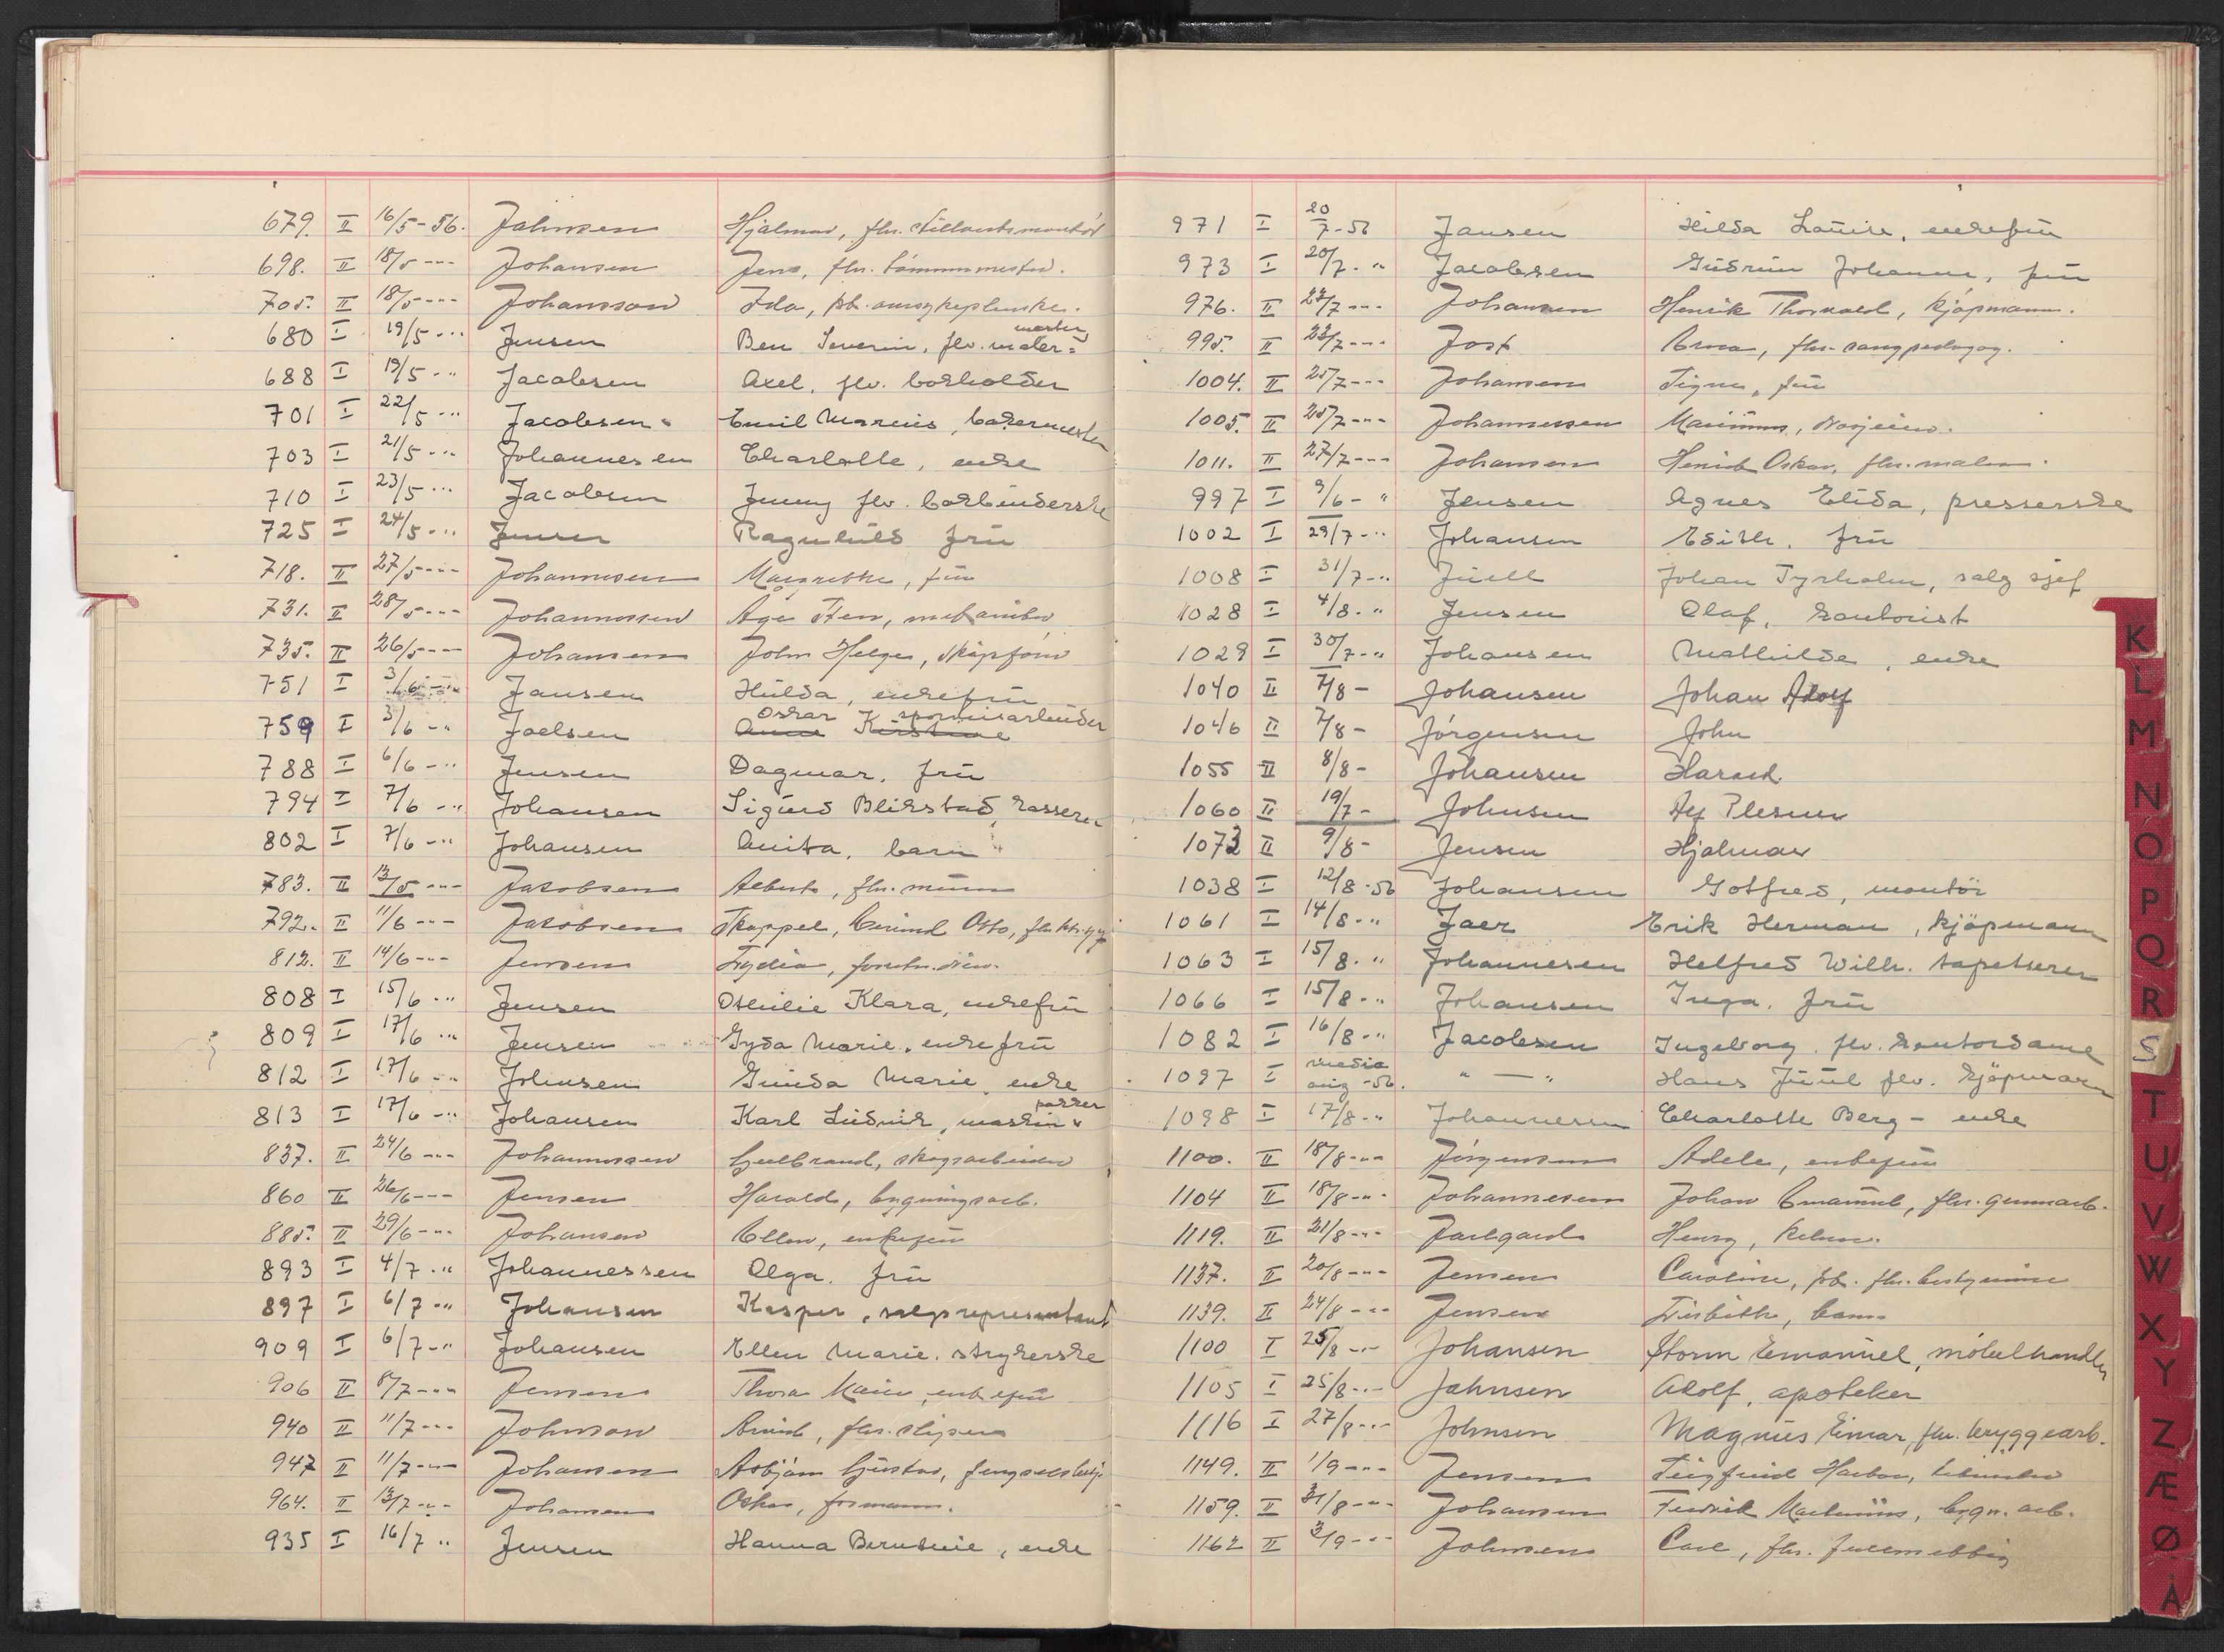 679. II 16/5-56. Jahnsen Hjalmar, fhv.
698. II 18/5 -"- Johansen Jens, fhv. tømmermester.
705. II 18/5 -"- Johansson Ida,
680 I 19/5 -"- Jensen Ben Severin, fhv. maler= mester
688 I 19/5 -"- Jacobsen Axel, fhv. bokholder
701 I 22/5 -"- Jacobsen Emil Marius, bakermester
703 I 21/5 -"- Johannesen Charlotte, enke
710 I 23/5 -"- Jacobsen Jenny fhv. bokbinderske
725 I 24/5 -"- Jensen Ragnhild frü
718. II 27/5 -"- Johannesen Margrethe, frü
731. II 28/5 -"- Johannessen Åge Sten, mekaniker
735. II 26/5 -"- Johansen John Helge,
751 I 3/6 -"- Jansen Hilda, enkefrü
759 I 3/6 -" Joelsen Oskar sporveisarbeider Anna Kirstine
788 I 6/6 -" Jensen Dagmar, frü
794 I 7/6 -" Johansen Sigurd Blikstad, kasserer
802 I 7/6 -" Johansen Anita, barn
783. II 13/5 -"- Jakobsen Alberts, fhv. murer
792. II 11/6 -"- Jakobsen Skappel, Eivind Otto,
812. II 14/6 -"- Jensen Lydia,
808 I 15/6 -" Jensen Othilie Klara, enkefrü
809 I 17/6 -" Jensen Gyda Marie, enkefrü
812 I 17/6 -" Johnsen Gunda Marie, enke
813 I 17/6 -" Johansen Karl Ludvik, maskin= pakker
837. II 24/6 -"- Johannessen Gulbrand, skogsarbeider
860 II 26/6 -"- Jensen Harald, bygningsarb.
885. II 29/6 -"- Johansen Ellen, enkefrü
893 I 4/7 -" Johannessen Olga, frü
897 I 6/7 -" Johansen Kasper, salgsrepresentant
909 I 6/7 -" Johansen Ellen Marie, strykerske
906 II 8/7 -"- Jensen Thora Marie, enkefrü
940 II 11/7 -"- Johnson Arvid, fhv. sliper
947 II 11/7 -"- Johansen Asbjørn Gustav,
964. II 13/7 -"- Johansen Oskar, formann.
935 I 16/7 " Jensen Hanna Berntine, enke
971 I 20/7-56 Jansen Hilda Louise, enkefrü
973 I 20/7 -" Jacobsen Gudrun Johanne, frü
976. II 24/7 -"- Johansen Henrik Thorvald, kjøpmann.
995. II 23/7 -"- Jost Erna, fhv. sangpedagog.
1004. II 25/7 -"- Johansen Signe, frü
1005. II 25/7 -"- Johannessen Marinius,
1011. II 27/7 -"- Johansen Henrik Oskar, fhv. maler.
997 I 9/6 - " Jensen Agnes Elida, presserske
1002 I 29/7 -" Johansen Edith, frü
1008 I 31/7 -" Juell Johan Tyrholm, salg sjef
1028 I 4/8 -" Jensen Olaf, kontorist
1029 I 30/7 -" Johansen Mathilde, enke
1040 II 7/8 - Johansen Johan Adolf
1046 II 7/8 - Jörgensen John
1055 II 8/8 - Johansen Harald
1060 II 19/7 - Johnsen Alf Plesner
1073 II 9/8 - Jensen Hjalmar
1038 I 12/8 -56 Johansen Gotfred, montör
1061 I 14/8 -" Jaer Erik Herman, kjöpmann
1063 I 15/8 -" Johannesen Helfred Wilh. tapetserer
1066 I 15/8 -" Johansen Inga, frü
1082 I 16/8 -" Jacobsen Ingeborg, fhv. kontordame
1097 I medio aug -56. " — " Hans Juul fhv. kjöpmann
1098 I 17/8 -" Johannesen Charlotte Berg - enke
1100. II 18/8 -"- Jörgensen Adele, enkefrü
1104 II 18/8 -"- Johannesen Johan Emanuel, fhv. gummiarb.
1119. II 21/8 -"- Jarlgard Henry,
1137. II 20/8 -"- Jensen Caroline,
1139. II 24/8 -"- Jensen Lisbeth, barn
1100 I 25/8 -"- Johansen Storm Emanuel, möbelhandler
1105 I 25/8 -"- Jahnsen Adolf, apoteker
1116 I 27/8 -"- Johnsen Magnus Einar, fhv. bryggearb.
1149. II 1/9 -"- Jensen Sigfrid
1159. II 31/8 -"- Johansen Fredrik bygn. arb.
1162 II 3/9 -"- Johnsen Carl, fhv.
K
L
M
N
O
P
Q
R
S
T
U
V
W
X
Y
Z
Æ
Ø
Å